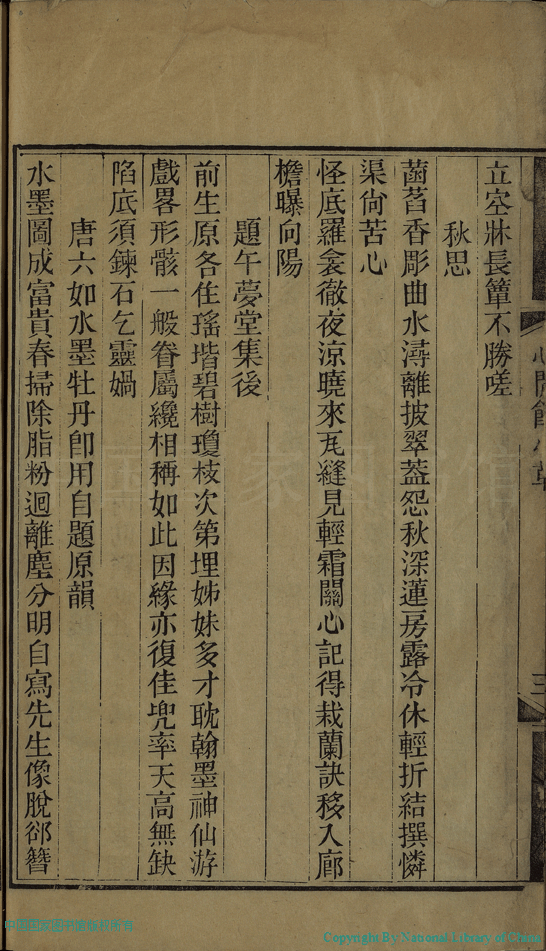 立空牀長簟不勝嗟
秋思
菡萏香彫曲水潯離披翠蓋怨秋深蓮房露冷休輕折結撰憐
渠尙苦心
怪底羅衾徹夜涼曉來瓦縫見輕霜關心記得栽蘭訣移入廊
檐曝向陽
題午夢堂集後
前生原各住瑤堦碧樹瓊枝次第埋姊妹多才耽翰墨神仙游
戲畧形骸一般眷屬纔相稱如此因緣亦復佳兜率天高無缺
陷底須鍊石乞靈媧
唐六如水墨牡丹卽用自題原韻
水墨圖成富貴春掃除脂粉迥離塵分明自寫先生像脫卻簪
三
Copyright By National Library of China